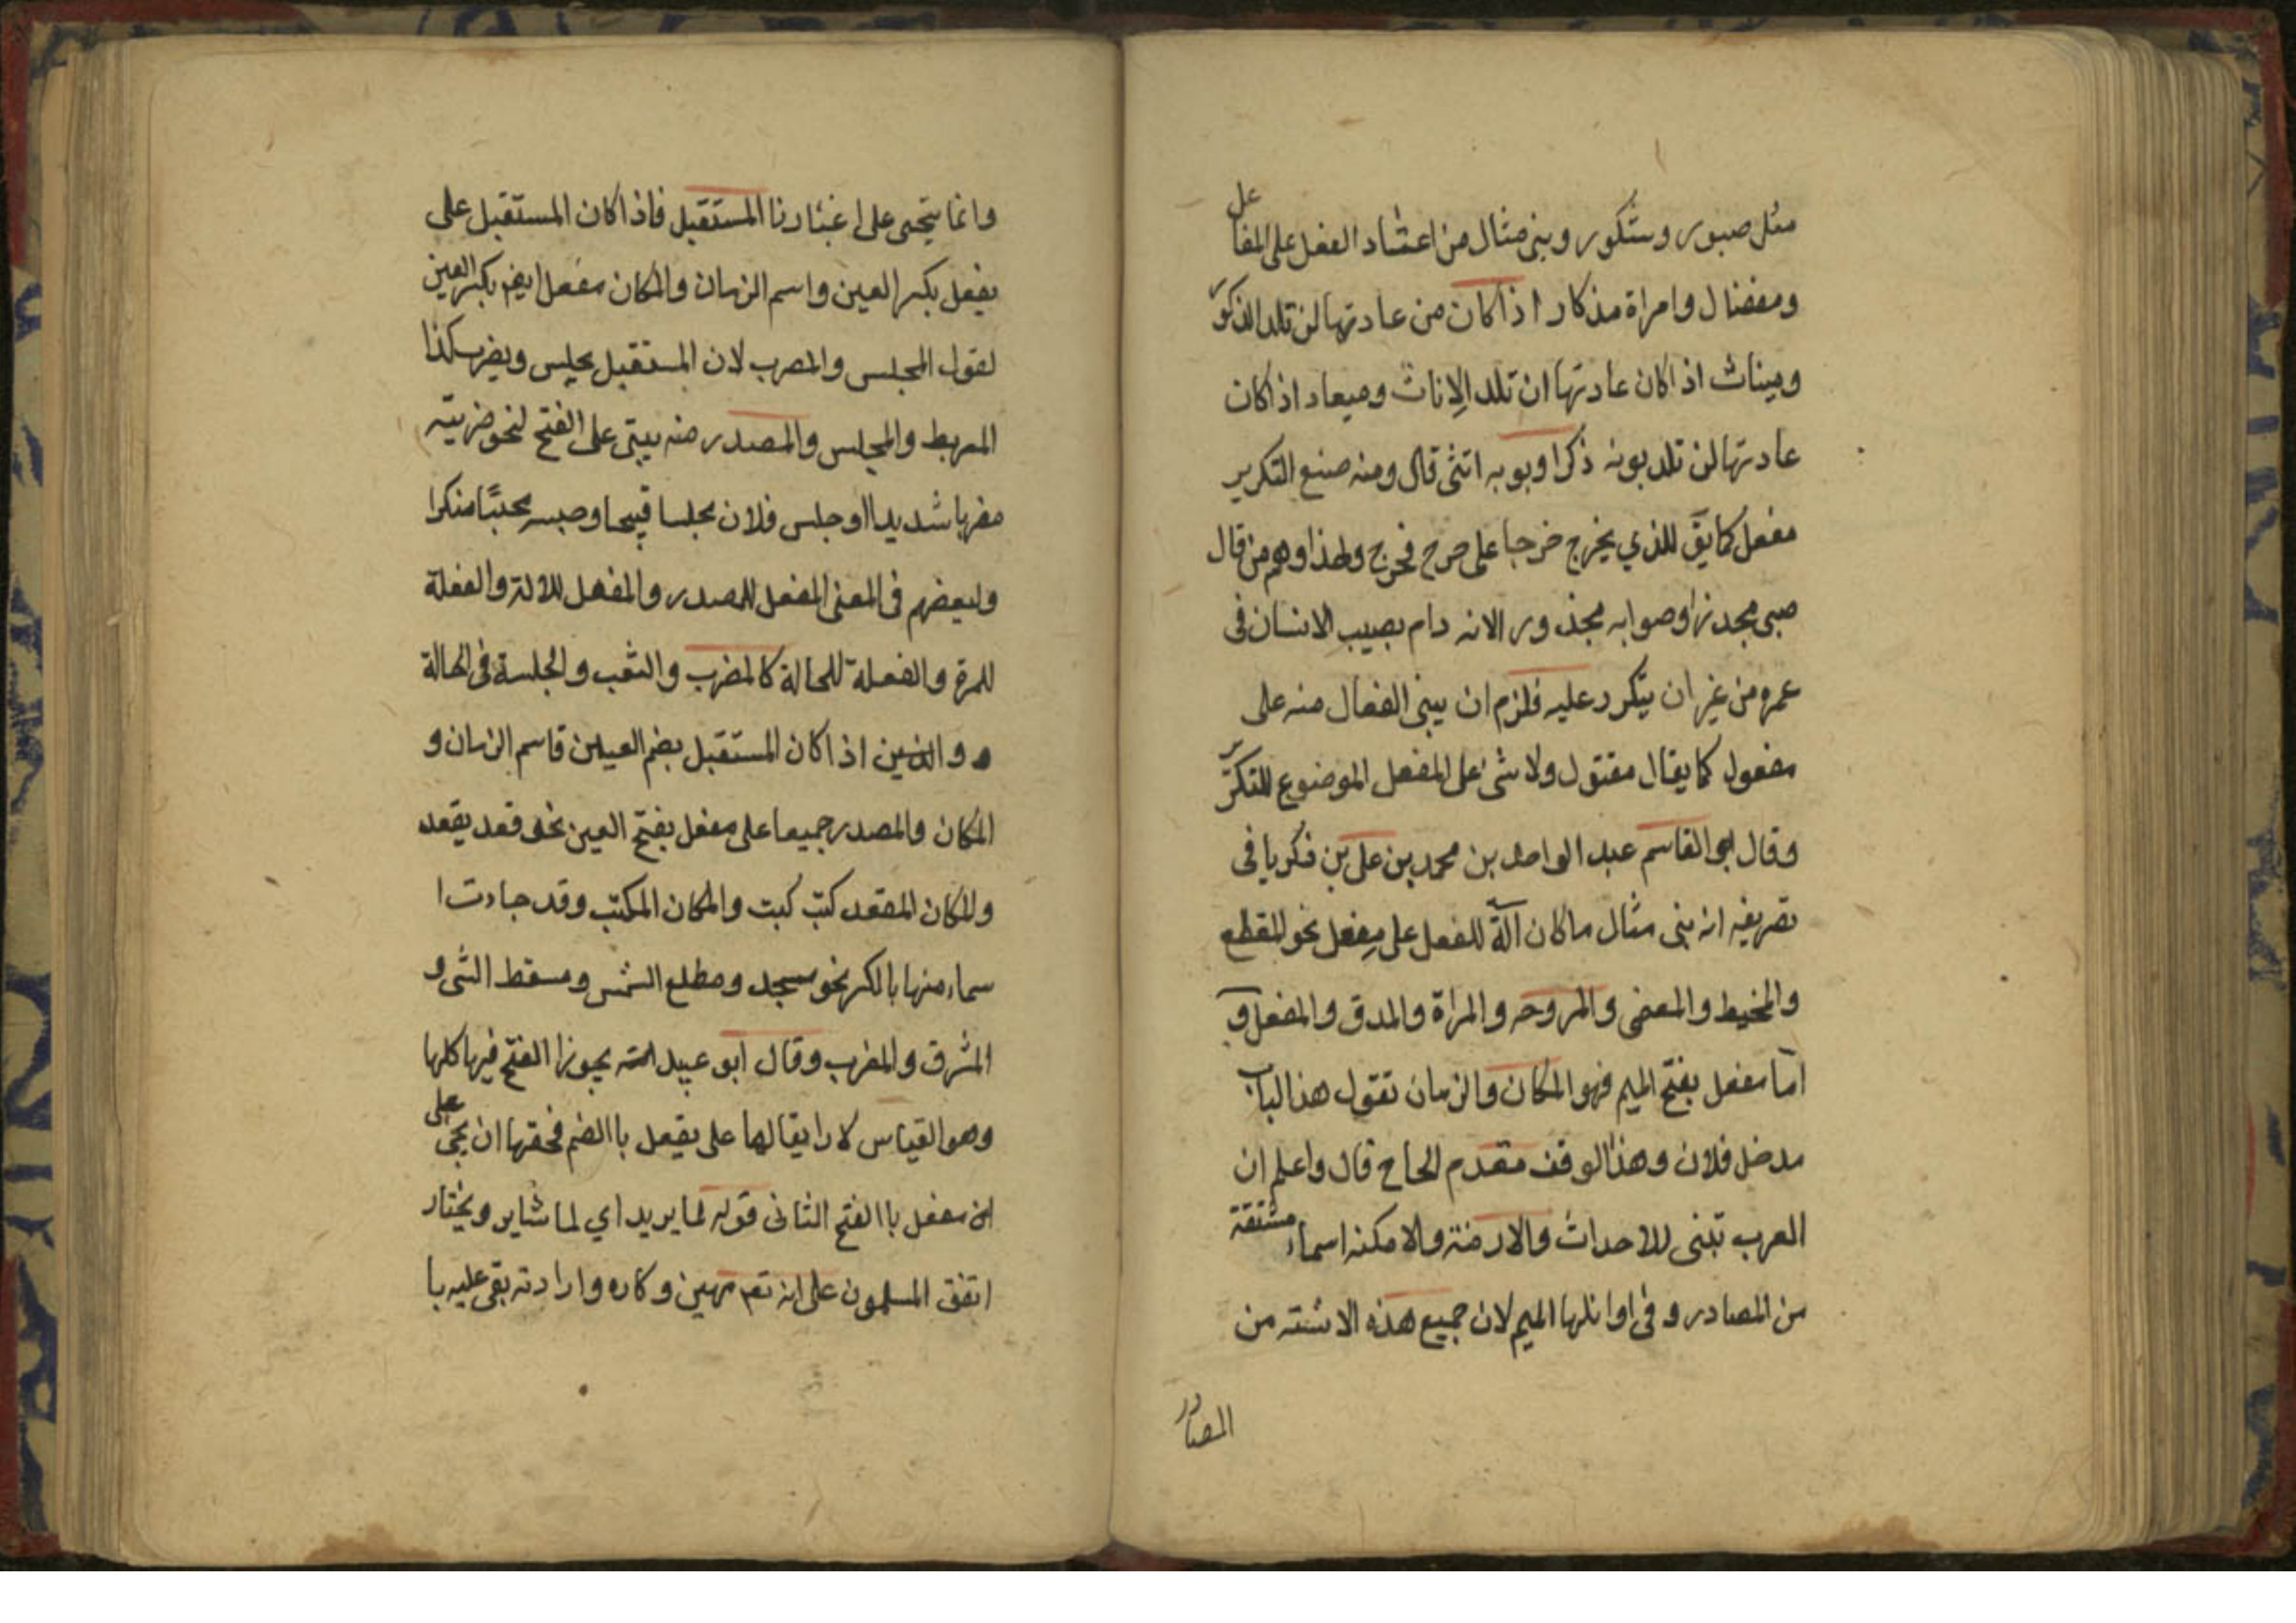 مثل صبور وشكور وبنى مثال من اعتاد الفعل على المفا عل
ومفضال وامراة مذكار اذا كان من عادتها لن تلد الذكور
وميناث اذا كان عادتها ان تلد الاناث وميعاد اذا كان
عادتها لن تلد بوبه ذكرا وبوبه انثى قال ومنه صنع التكرير
مفعل كما يق للذي يخرج خرجا على جرح فجرج ولهذا وهم من قال
صبى مجدر او صوابه مجذور الانه دام بصيب الانسان فى
عمره من غير ان يتكرر عليه فلزم ان يبنى الفعال منه على
مفعول كما يقال مقتول ولا شئ على المفعل الموضوع للتكرير
وقال ابو القاسم عبد الواحد بن محمد بن على بن فكريا فى
تصريفه انه بنى مثال ما كان آلة للفعل على مفعل نحو المقطع
والمخيط والمعضى والمروحه والمراة والمدق والمفعل و
اما مفعل بفتح الميم فهو المكان والزمان تقول هذا الباب
مدخل فلان وهذا لوقت مقدم الحاج قال واعلم ان
العرب تبنى للاحداث والازمنة والامكنه اسماء مشتقة
من المصادر وفى اوائلها الميم لان جميع هذه الاشتة من
المصادر
وانما يتجى على اعتبارنا المستقبل فاذا كان المستقبل على
يفعل بكسر العين واسم الزمان والمكان مفعل ايضم بكسر العين
لقول المجلس والمضرب لان المستقبل يجلس ويضرب كذا
المربط والمجلس والمصدر منه يبتى على الفتح لنحو ضربته
مضربا شديدا او جلس فلان مجلسا قبيحا وحبسه محبسًا منكرا
ولبعضهم فى المعنى المفعل للمصدر والمفعل للالة والفعلة
للمرة والفعلة للحالة كالمضرب والشعب والجلسة فى الحالة
و والذين اذا كان المستقبل بضم العيلين قاسم الزمان و
المكان والمصدر جميعا على مفعل بفتح العين نحو قعد يقعد
والمكان المقعد كتب كبت والمكان المكتب وقد جاءت ا
سماء منها بالكر نحو مسجد ومطلع الشمس ومسقط الشى و
المشرق والمغرب وقال ابو عبيد الله يجوزا الفتح فيها كلها
وهو القياس لا رايقالها على يفعل باالضم فحقها ان يجئ على
ان مفعل باالفتح الثانى قوله لما يريد اي لما شاير ويختار
اتفق المسلمون على انه تعم مهين وكاره وارادته بقى عليه با